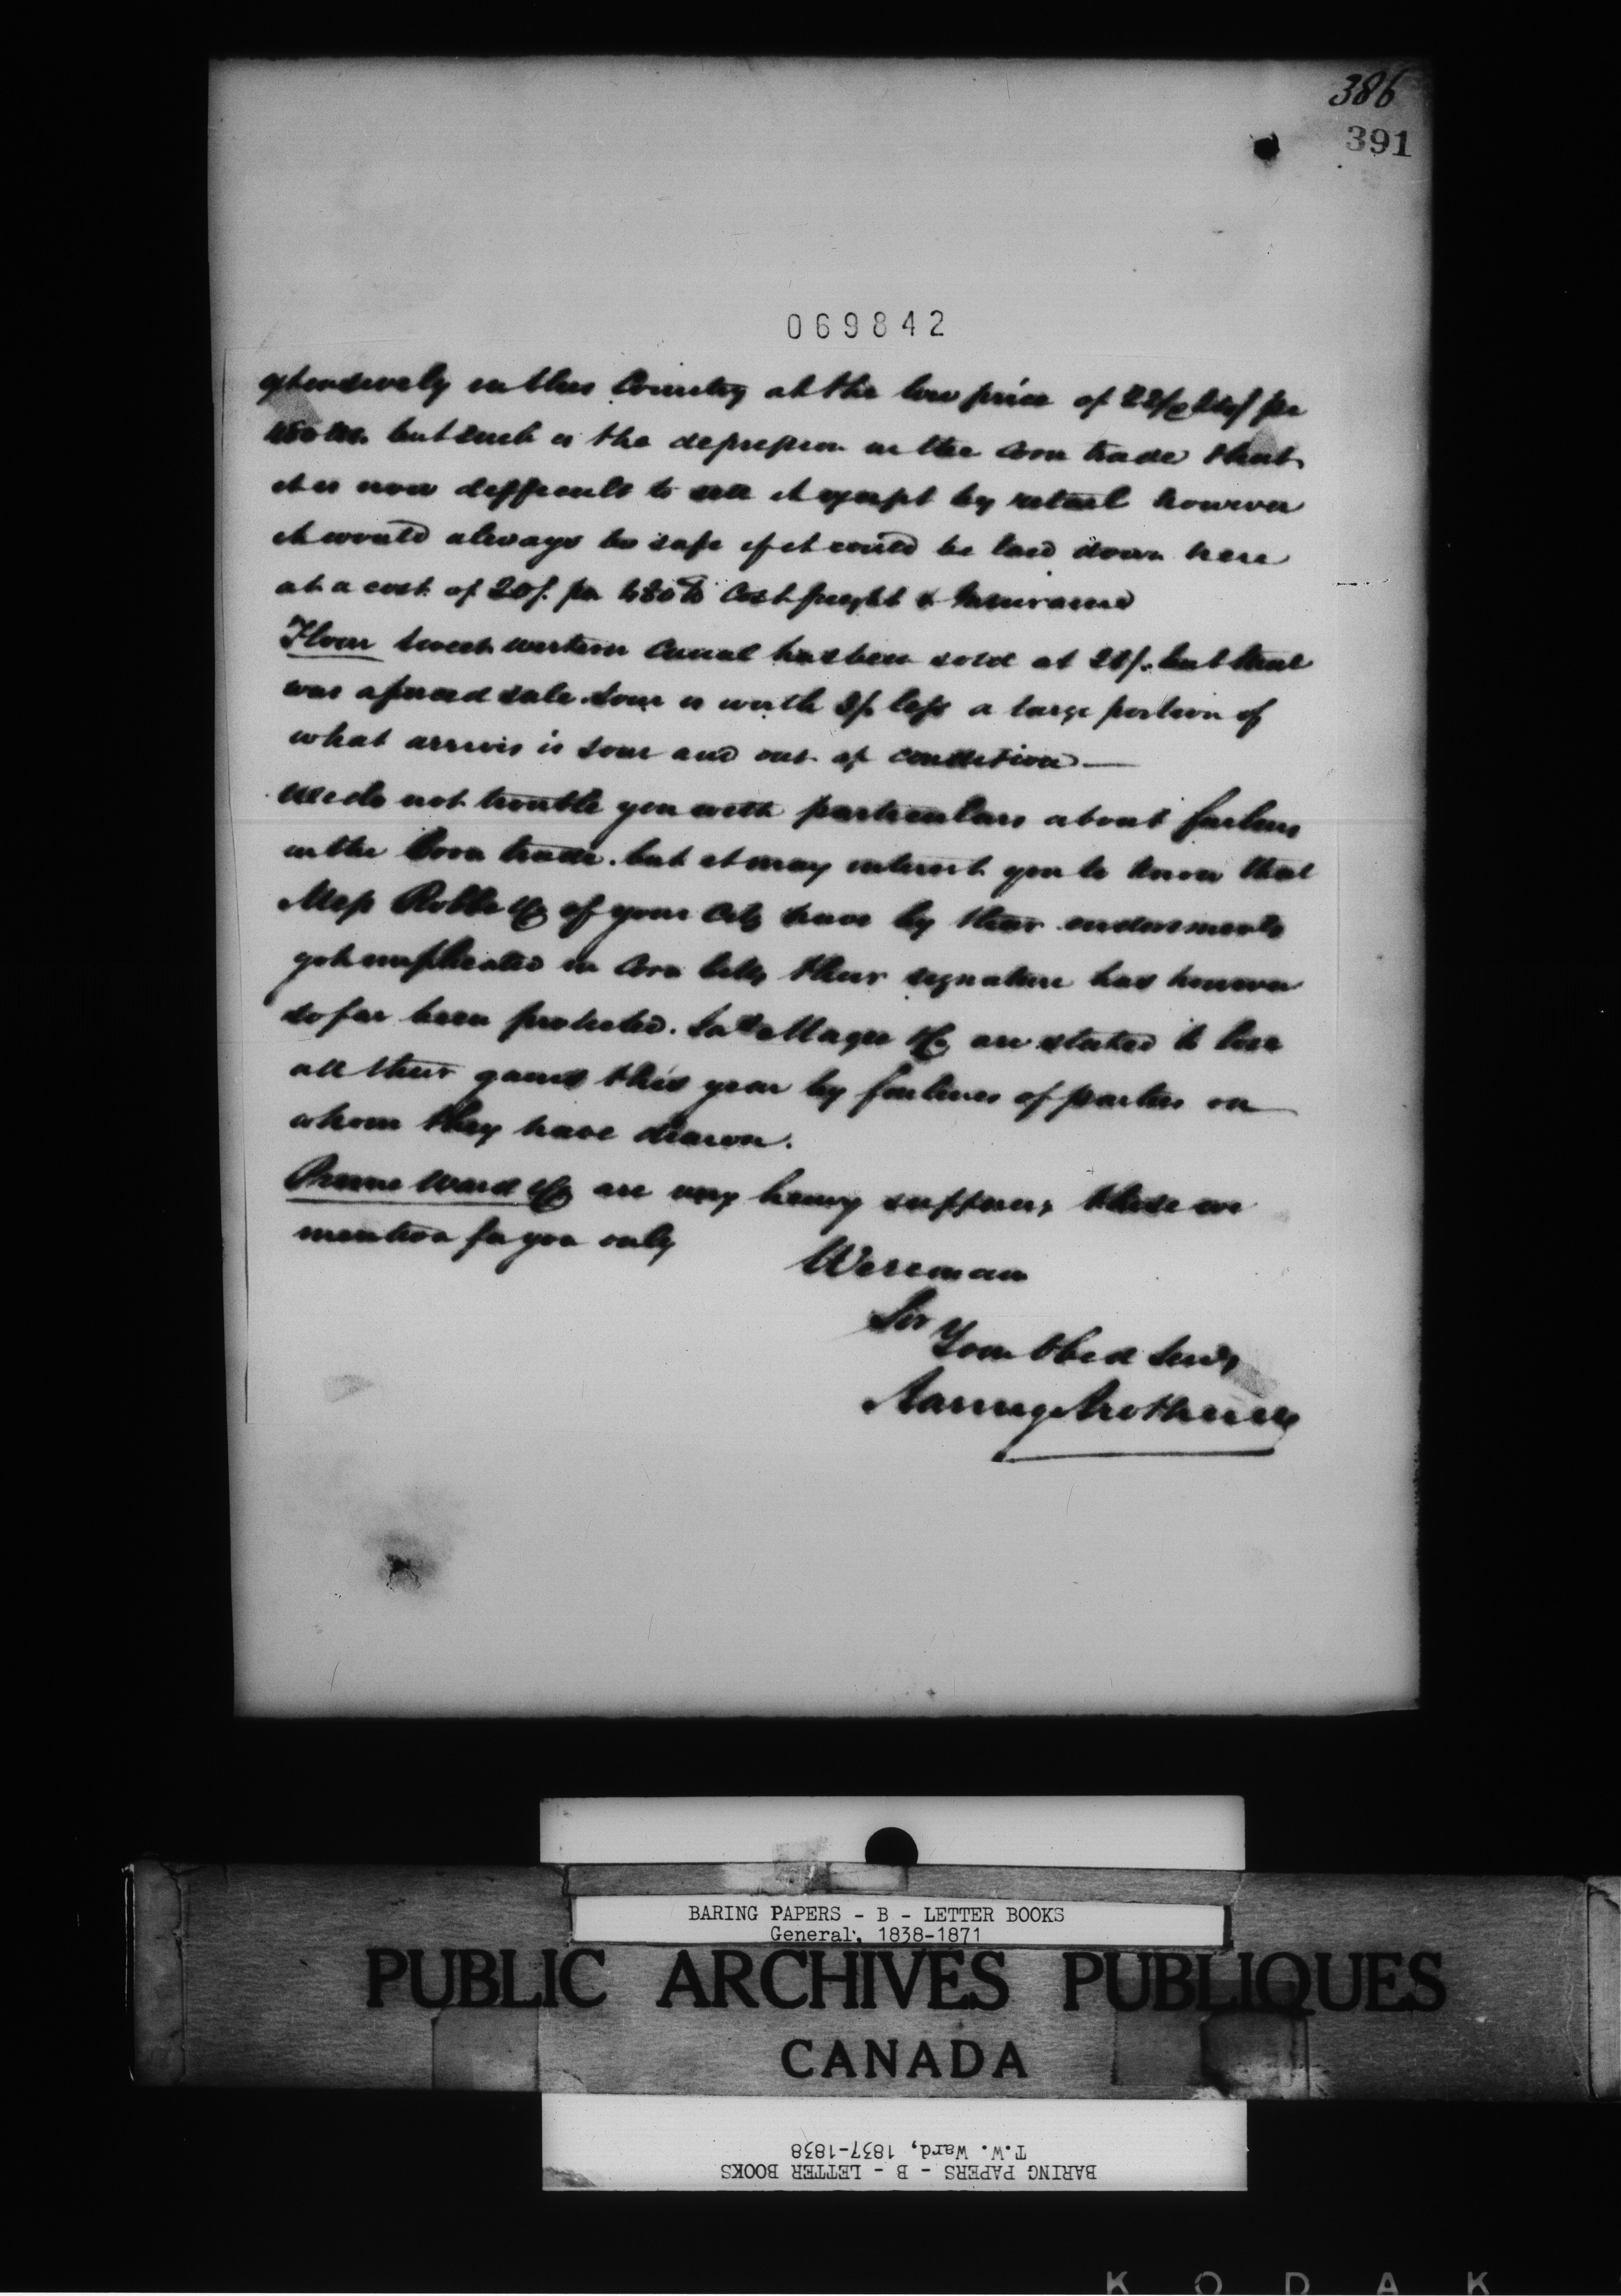 386
391
069842
extensively in this Country at the low price of per
480 lbs. but such is the depression in the Corn trade that
it is now difficult to sell it except by retail however
it would always be safe if it could be laid down here
at a cost of 20/. per 480 lb Cost freight & Insurance
Flour Sweet western Canal has been sold at 28/. but that
was a forced sale. Sour is worth 2/. less a large portion of
what arrives is sour and out of condition —
We do not trouble you with particulars about failures
in the Corn trade. but it may interest you to know that
Mess of your City have by their endorsements
got implicated in Corn bills, their signature has however
so far been protected. Magee & Co are stated to lose
all their gains this year by failures of parties on
whom they have drawn.
Prime Ward & Co are very heavy sufferers, these we
mention for you only
We remain
Sir
Your Obed Servts
Baring Brothers & Co
BARING PAPERS - B - LETTER BOOKS
General, 1838-1871
PUBLIC ARCHIVES PUBLIQUES
CANADA
T.W. Ward, 1837-1838
BARING PAPERS - B - LETTER BOOKS
K O D A K